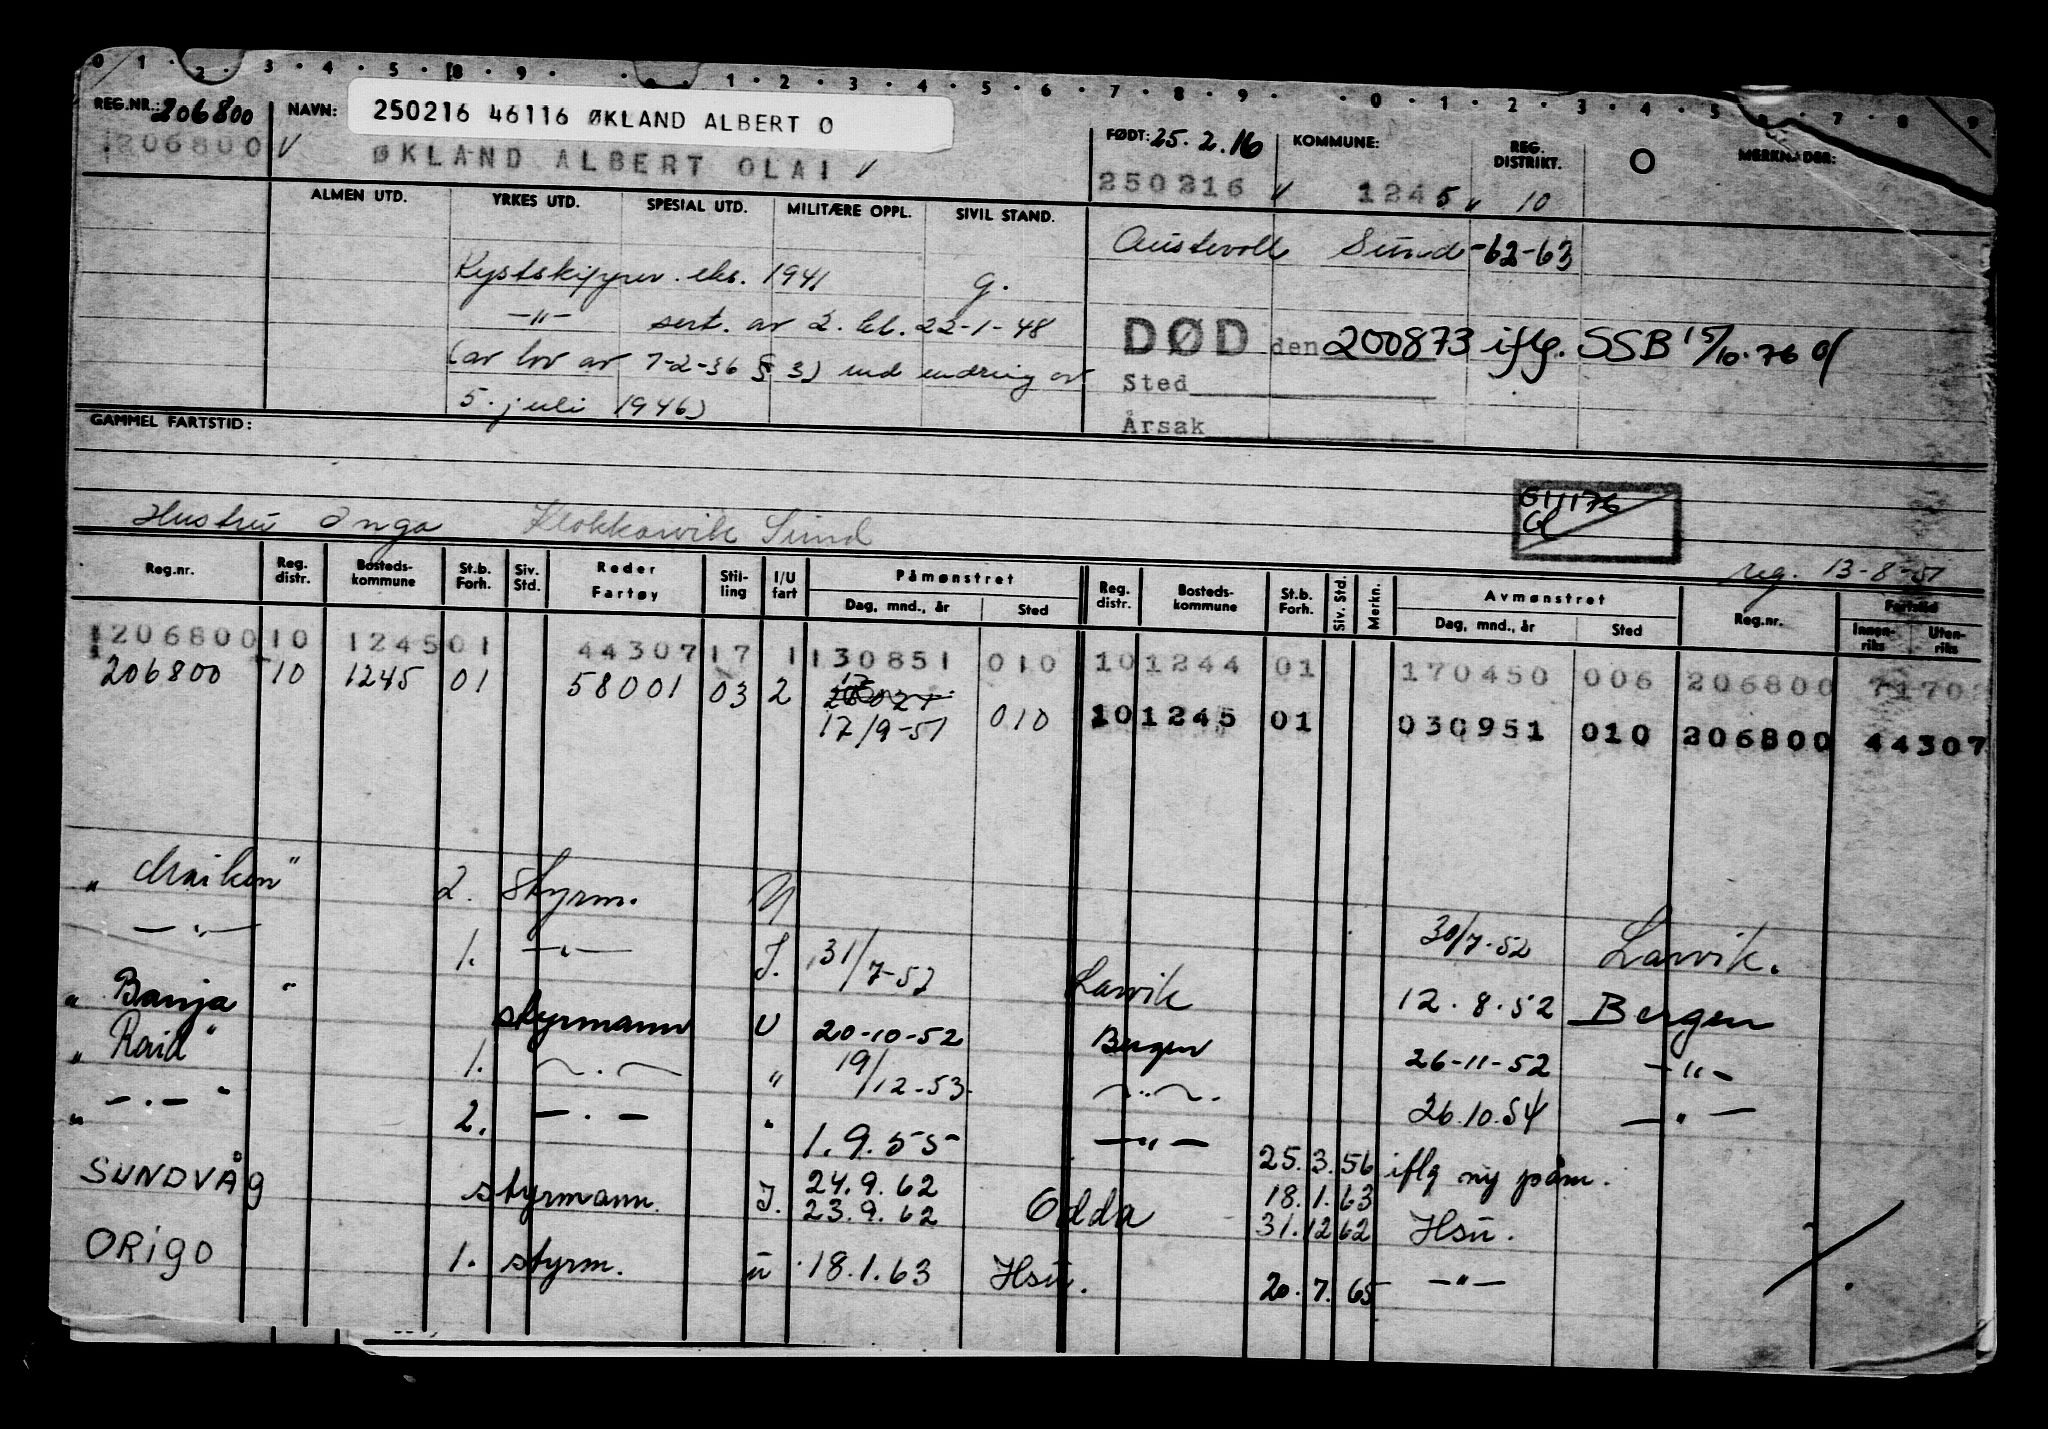 0 1 2 3 4 5 8 9 0 1 2 3 4 5 6 7 8 9 0 1 2 3 4 5 6 7 8 9
REG.NR.: 206800 NAVN: 250216 46116 ØKLAND ALBERT O FØDT: 25.2.16 KOMMUNE: REG. DISTRIKT. O MERKNADER:
1206800 ✓ ØKLAND ALBERT OLAI ✓ 250216 ✓ 1245 10
ALMEN UTD. YRKES UTD. SPESIAL UTD. MILITÆRE OPPL. SIVIL STAND.
Austevoll Sund -62-63
Kystskipper eks. 1941 g.
-"- sert. av 2. kl. 22-1-48
DØD den 200873 iflg. SSB 15/10.76
(av lov av 7-2-36 § 3) med endring av
Sted
5. juli 1946)
Årsak
GAMMEL FARTSTID:
511176
Hustru Inga Klokkarvik Sund
reg. 13-8-51
Reg.nr. Reg. distr. Bosteds- kommune St.b. Forh. Siv. Std. Reder Fartøy Stil- ling I/U fart Påmønstret Dag, mnd., år Sted Reg. distr. Bosteds- kommune St.b. Forh. Siv. Std. Merkn. Avmønstret Dag, mnd., år Sted Reg.nr. Fartstid Innen- riks Uten- riks
1206800 10 1245 01 44307 17 1 130851 010 10 1244 01 170450 006 206800 7170
206800 10 1245 01 58001 03 2 17/9-51 010 10 1245 01 030951 010 206800 44307
"Maiken" 2. Styrm. U 30/7-52 Larvik.
-"- 1. -"- I. 31/7-52 Larvik 12.8.52 Bergen
"Banja" styrmann U 20-10-52 Bergen 26-11-52 -"-
"Raid" 1. -"- " 19/12-53 -"- 26.10.54 -"-
" -"- " 2. -"- " 1.9.55 -"- 25.3.56 iflg ny påm.
SUNDVÅG styrmann I. 24.9.62 Odda 18.1.63
23.9.62 31.12.62 Hsu.
ORIGO 1. styrm. u 18.1.63 Hsu. 20.7.65 -"-